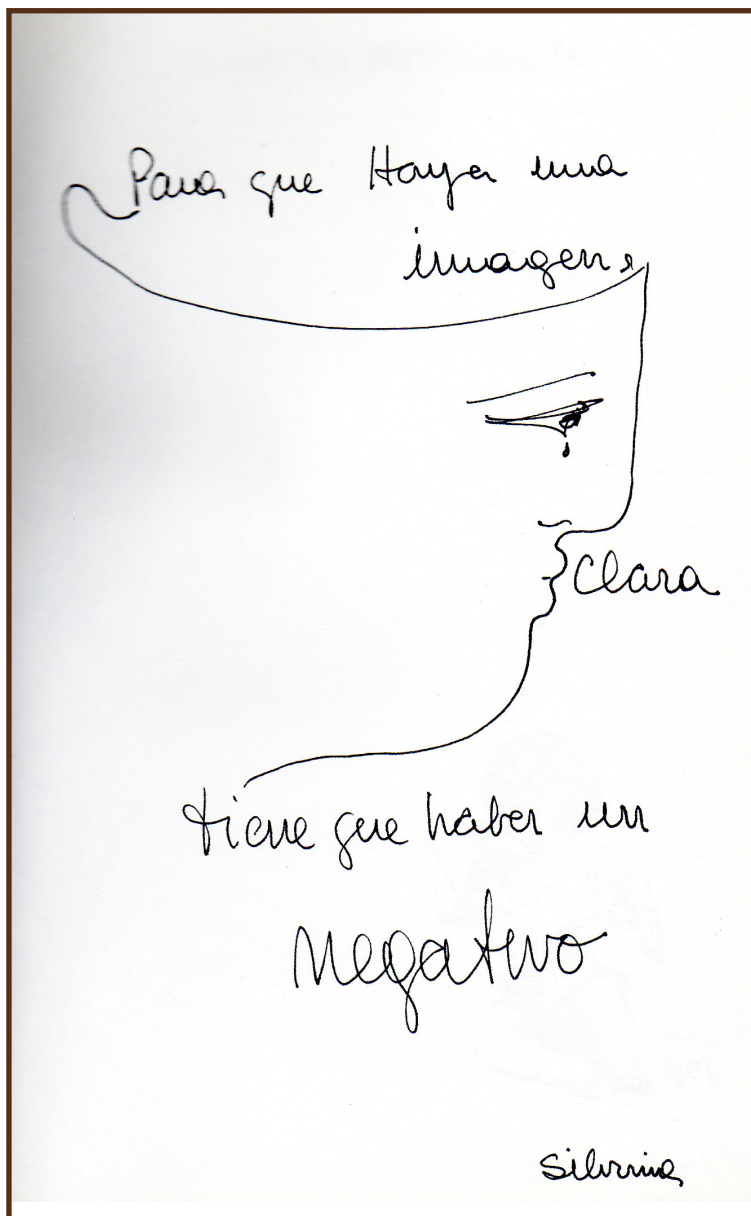 Para que Haya una
imagen
Clara
tiene que haber un
negativo
Silvina